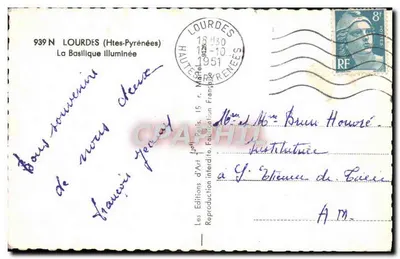 939 N LOURDES (Htes-Pyrénées)
La Basilique illuminée
LOURDES
18H30
1951
HAUTES-PYRÉNÉES
8F
RF
Bons souvenirs
de nous deux
François
Les Editions d'Art
Reproduction interdite. Fabrication Française
CPARAMA
Mr et Mme Brun Honoré
Institutrice
à St Etienne de Tinée
A M.